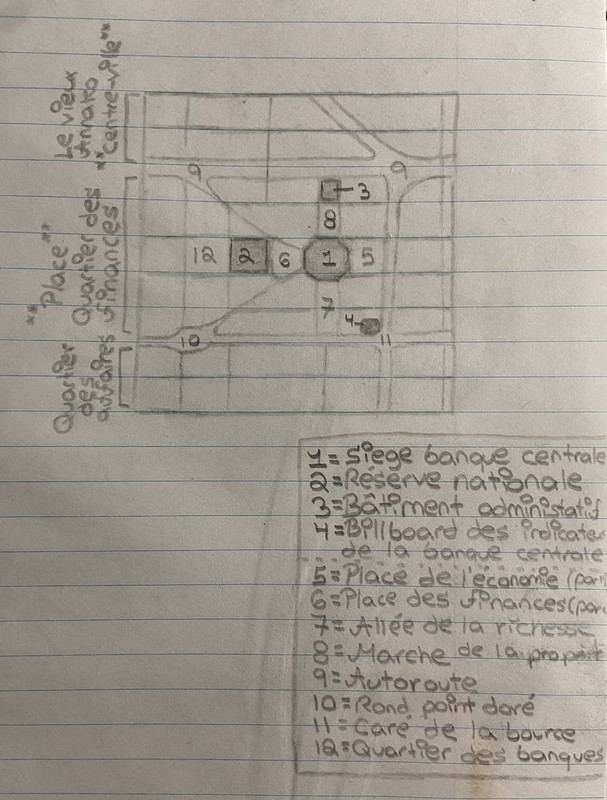 Le vieux
Amako
**Centre-ville**
**Place**
Quartier des
finances
Quartier
des
affaires
9
9
3
8
12
2
6
1
5
7
4
10
11
1=Siege banque centrale
2=Réserve nationale
3=Bâtiment administatif
4=Billboard des indicateu
de la banque centrale
5=Place de l'économie (par
6=Place des finances(par
7=Allée de la richesse
8=Marche de la
9=Autoroute
10=Rond point doré
11=Caré de la bourse
12=Quartier des banques